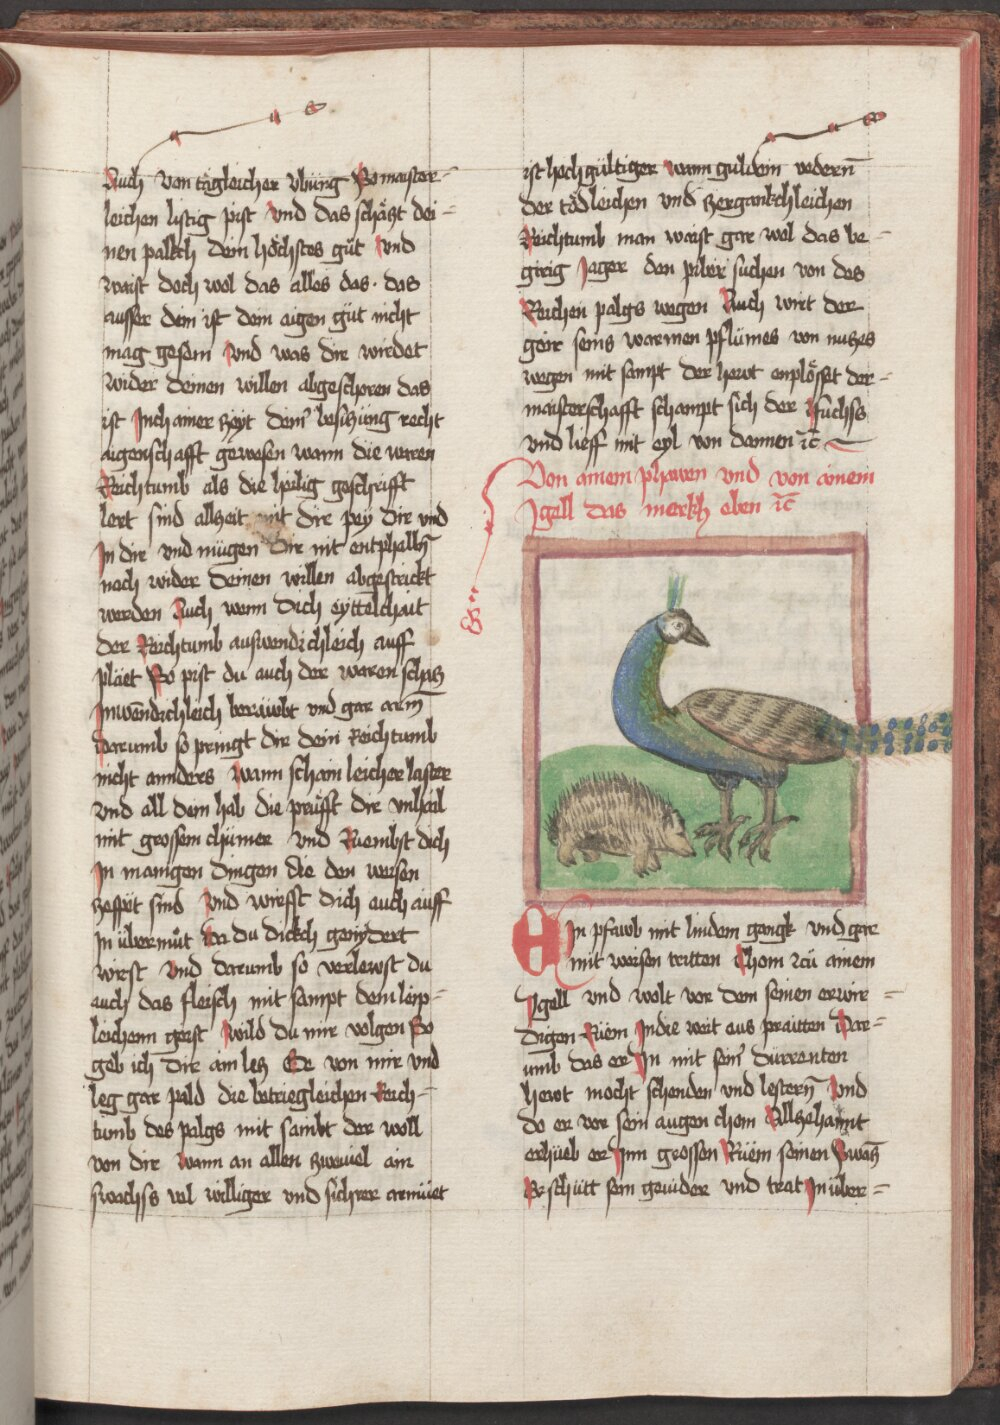 Auch von tägleicher vbüng So maister-
leichen listig pist Vnd das schäzt dei-
nen palkch dein höchstes güt Vnd
waist doch wol das alles das. das
ausser dem ist dem aigen güt nicht
mag gesein Vnd was dir wirdet
wider deinen willen abgeschoren das
ist In chainer zeyt dein besiczüng recht
aigenschafft gewesen wann die waren
Reichtumb als die heilig geschrifft
lert sind allzeit mit dir pey dir vnd
In dir vnd mügen dir nit entphalln̄
noch wider deinen willen abgestrickt
werden Auch wenn dich eyttelchait
der Reichtumb auswendichleich auff
pläet So pist du auch der waren schäz
Inwēndichleich beraubt vnd gar arm
darumb so pringt dir dein Reichtumb
nicht annders Wann schamleicher laster
vnd all dem hab die prüfft dir vnhail
mit grossem chümer Vnd Ruembst dich
In manigen dingen die den weisen
 sind Vnd wirffst dich auch auff
In übermüt da du dickch genydert
wirst Vnd darumb so verlewst du
auch das fleisch mit sampt dem leip-
leichenn geist Wild du mir volgen So
gib ich dir ain lez Ee von mir vnd
leg gar pald die betriegleichen Reich-
tumb des palgs mit sambt der woll
von dir Wann an allen zweiuel ain
 vil williger vnd sichrer armüet
ist hochgültiger Wann guldein vedern̄
der tödleichen vnd zergankchleichen
Reichtumb man waist gar wol das be-
girig Jager den piber suchen von des
Reichen palgs wegen Auch wirt der
geir seins warmen pflümes von nuczes
wegen mit sampt der hewt enplösset der-
maisterschafft schampt sich der Fuchss
vnd lieff mit eyl von dannen ꝛc̄
Von ainem phawen vnd von ainem
Igell das merkh eben ꝛc̄
EIn pfawb mit lindem gangk vnd gar
mit weisen tritten Chom zu ainem
Igell vnd wolt vor dem seinen erwir-
digen Ruem In die weit aus praitten Dar-
umb das er In mit sein dürrenten
hewt mocht schenden vnd lestern̄ Vnd
do er vor sein augen chom Allzehannt
erhueb er Inn grossen Rüem seinen Swancz
Er schütt sein geuider vnd trat In über-